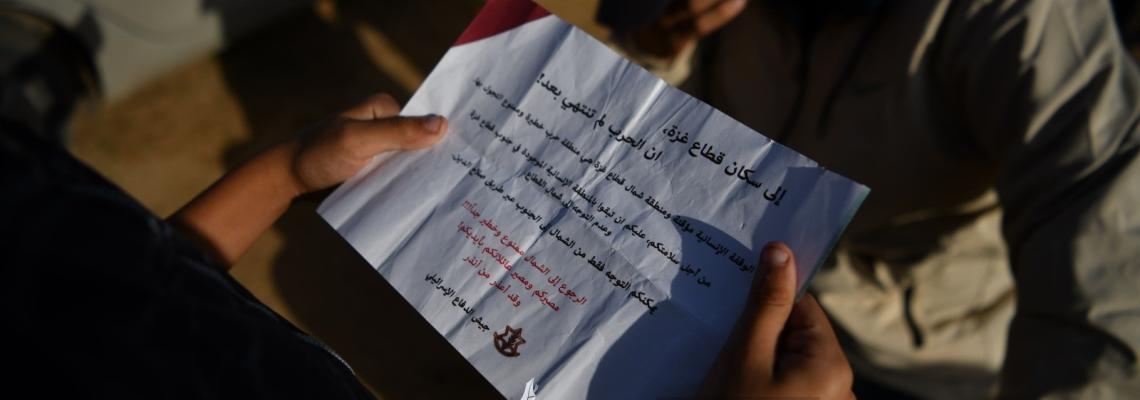 إلى سكان قطاع غزة،
ان الحرب لم تنتهي بعد!
الوقفة الإنسانية مؤقتة ومنطقة شمال قطاع غزة هي منطقة حرب خطيرة وممنوع التجول بها
من أجل سلامتكم، عليكم ان تبقوا بالمنطقة الإنسانية الموجودة في جنوب قطاع غزة
وعدم التوجه إلى شمال القطاع
يمكنكم التوجه فقط من الشمال الى الجنوب عبر طريق صلاح الدين
الرجوع إلى الشمال ممنوع وخطير جدا!!!
مصيركم ومصير عائلاتكم بأيديكم!
وقد أعذر من أنذر
جيش الدفاع الإسرائيلي